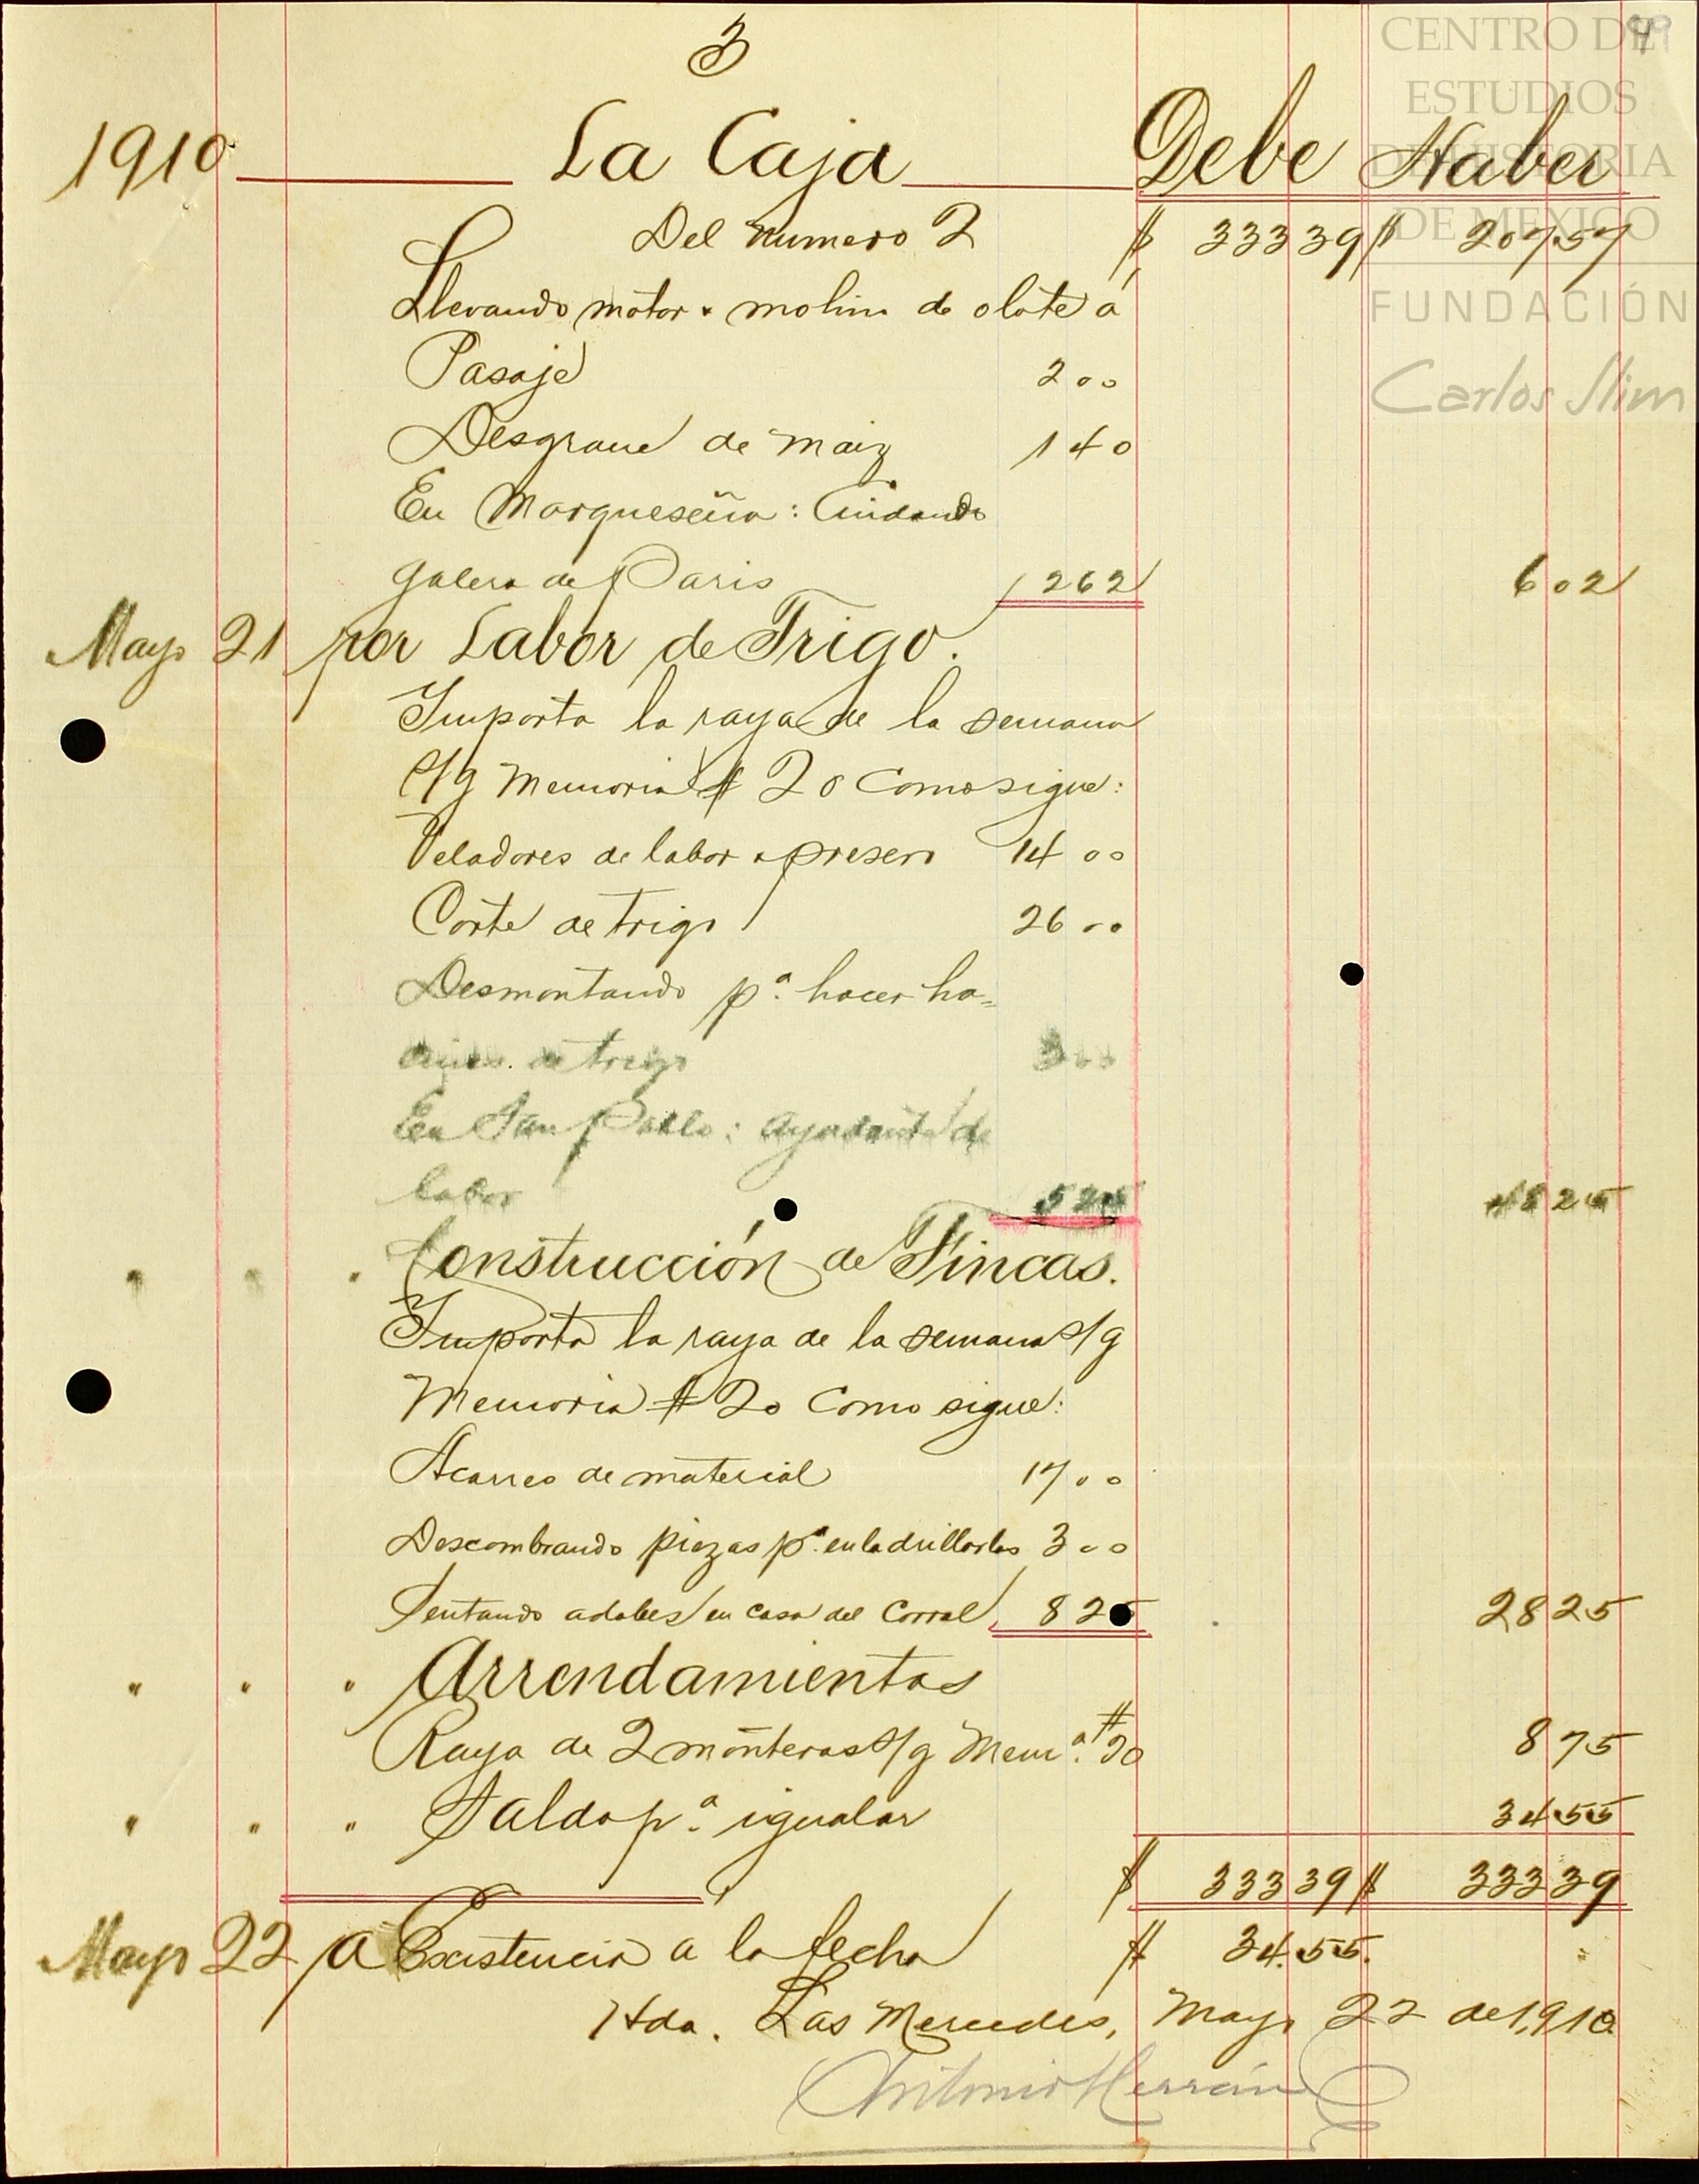 3
1910 La Caja Debe Haber
Del numero 2 $ 333 39 $ 207.57
Llevando motor y molino de olote á
Pasaje 2 00
Desgrane de maiz 1 40
En Marqueseña: Cuidando
galera de Paris 2 62 6 02
Mayo 21 por Labor de Trigo.
Importa la raya de la semana
s/g Memoria # 20 como sigue:
Veladores de labor y presero 14 00
Corte de trigo 26 00
Desmontando pª. hacer ha=
cinas de trigo 3 00
En San Pablo: ayudante de
labor 5 25 48 25
" " " Construcción de Fincas.
Importa la raya de la semana s/g
Memoria # 20 como sigue:
Acarreo de material 17 00
Descombrando piezas pª. enladrillarlas 3 00
Sentando adobes en casa del corral 8 25 28 25
" " " Arrendamientos
Raya de 2 monteros s/g Memª. # 20 8 75
" " " Saldo pª. igualar 34.55
$ 333 39 $ 333 39
Mayo 22 a Existencia a la fecha $ 34.55.
Hda. Las Mercedes, Mayo 22 de 1,910
Antonio Herrán
CENTRO DE
ESTUDIOS
DE HISTORIA
DE MEXICO
FUNDACIÓN
Carlos Slim